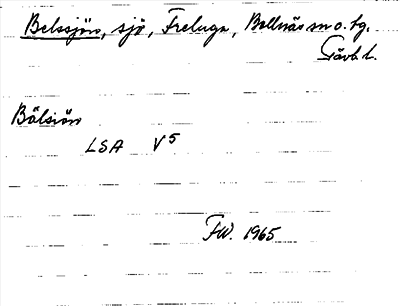 Belssjön, sjö, Freluga, Bollnäs sn o. tg.
Gävb. l.
Bälsiön
LSA V5
FW. 1965